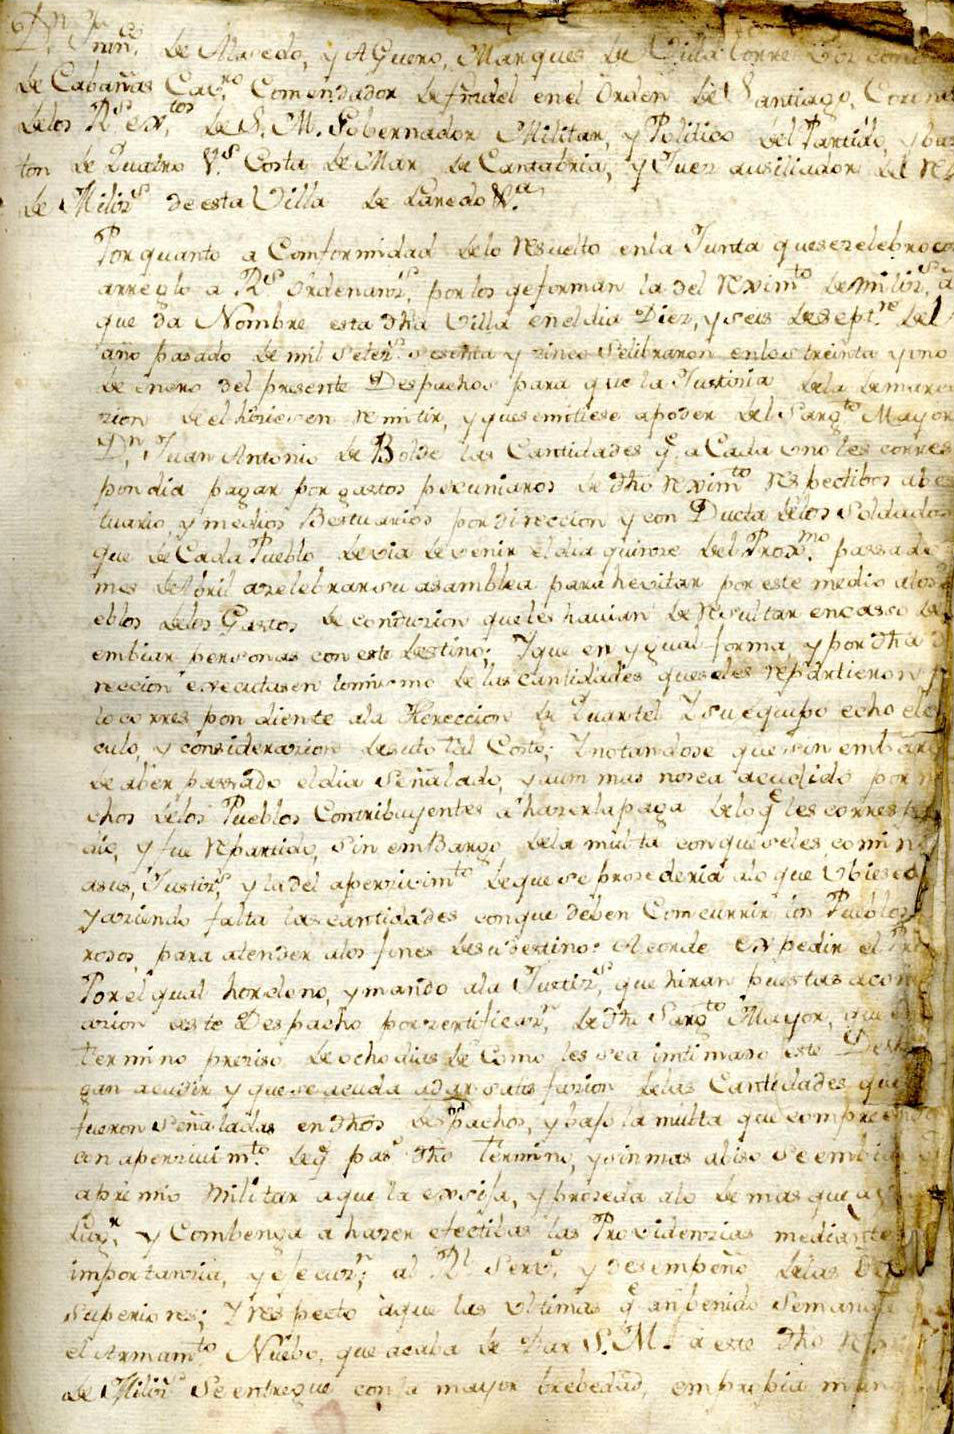 Dn Franco de Macedo, y Aguero, Marques de Villa torre Viz conde
de Cabañas Cavro Comendador de fradel en el Orden de Santiago, Coronel
de los Rs extos de S. M. Gobernador Militar, y Politico del Partido, y bas
ton de Quatro Vs Costa de Mar de Cantabria, y Juez ausiliador del Rx
de Milizs de esta Villa de Laredo Va
Por quanto a Comformidad de lo Resuelto en la Junta que se zelebro con
arreglo a Rs ordenanzs, por los qe forman la del Reximto de Milizs, a
que da Nombre esta dha Villa en el dia Diez, y seis de septre del
año pasado de mil setezs sesenta y zinco se libraron en los treinta y uno
de enero del presente Despachos para que la Justizia de la demarca
zion de el hiziesen Remitir, y que se emitiese a poder del Sargto Mayor
Dn Juan Antonio de Bolde las Cantidades q. a Cada uno les corres
pondia pagar por gastos pecuniaros de dho reximto Respectibos a bes
tuario y medios Bestuarios por direccion y con Ducta de los Soldados
que de Cada Pueblo devia de venir el dia quinze del Proxmo passado
mes de Abril a zelebrar su asamblea para hevitar por este medio a los
eblos de los Gastos de conduzion que les havian de Resultar en caso de
embiar personas con este destino; Y que en ygual forma, y por dha di
reccion executasen lo mismo de las cantidades que se les Repartieron p
lo corres pondiente a la Hereccion de Quartel Y su equipo echo el
culo, y considerazion de su total Coste; Y notandose que sin embargo
de aber passado el dia señalado, y aum mas no sea acudido por m
chos de los Pueblos Contribuyentes a hazer la paga de lo q. les corres
dio, y fue Repartido, sin em Bargo de la multa con que se les comin
a sus Justizs, y la del aperzivimto de que se prozederia a lo que Ubiese
y aziendo falta las cantidades con que deben Comcurrir los Pueblos
rosos, para atender a los fines de su destino: Acorde expedir el Pre
Por el qual hordeno, y mando a la Justizs, que hiran puestas a con
azion de este Despacho por zertificazn de dho Sargto Mayor, que en
termino preziso de ocho dias de como les sea intimado este Des
gan acudir y que se acuda a dar satis fazion de las Cantidades que
fueron Señaladas en dhos despachos, y bajo la multa que compreende
con aperzivimto de q. pasdo dho termino, y sin mas abiso se embia
apremio Militar a que la exsija, y prozeda a lo de mas que a
Lugr y Combenga a hazer efectibas las Providenzias mediante
importanzia, y ejecuzn; al Rl servo y desempeño de las
superiores; Y respecto a que las ultimas q. an benido Semana
el Armamto Nuebo, que acaba de Dar S. M. a este dho
de Milizs Se entregue con la mayor brebedad, em propia man